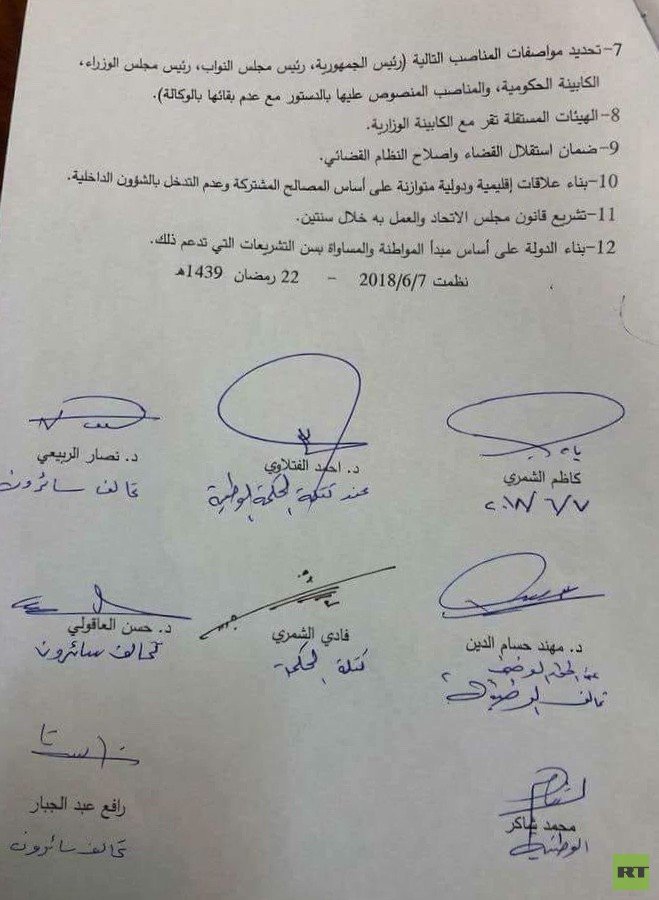 7-تحديد مواصفات المناصب التالية (رئيس الجمهورية، رئيس مجلس النواب، رئيس مجلس الوزراء،
الكابينة الحكومية، والمناصب المنصوص عليها بالدستور مع عدم بقائها بالوكالة).
8-الهيئات المستقلة تقر مع الكابينة الوزارية.
9-ضمان استقلال القضاء واصلاح النظام القضائي.
10-بناء علاقات إقليمية ودولية متوازنة على أساس المصالح المشتركة وعدم التدخل بالشؤون الداخلية.
11-تشريع قانون مجلس الاتحاد والعمل به خلال سنتين.
12-بناء الدولة على أساس مبدأ المواطنة والمساواة بسن التشريعات التي تدعم ذلك.
نظمت 2018/6/7 - 22 رمضان 1439هـ
كاظم الشمري
٢٠١٨/٦/٧
د. احمد الفتلاوي
عن كتلة الحكمة الوطنية
د. نصار الربيعي
تحالف سائرون
د. مهند حسام الدين
تحالف الوطنية
فادي الشمري
كتلة الحكمة
د. حسن العاقولي
تحالف سائرون
محمد شاكر
الوطنية
رافع عبد الجبار
تحالف سائرون
RT